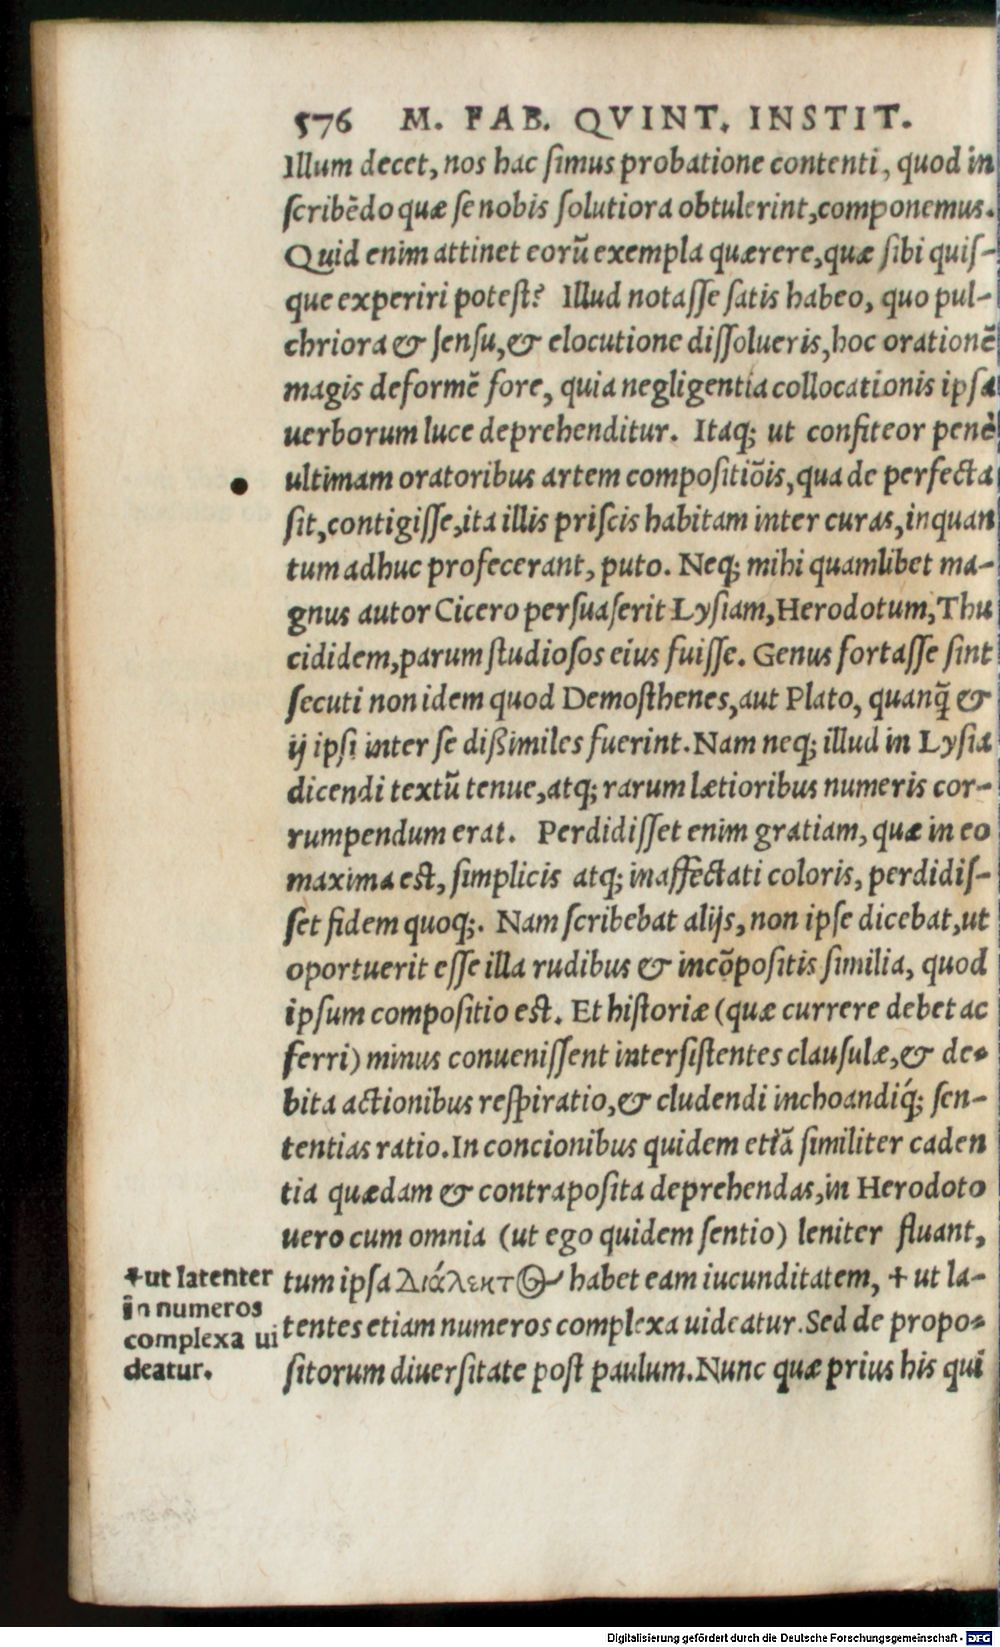 576 M. FAB. QVINT. INSTIT.
Illum decet, nos hac ſimus probatione contenti, quod in
ſcribẽdo quæ ſe nobis ſolutiora obtulerint,componemus.
Quid enim attinet eorũ exempla quærere,quæ ſibi quiſ-
que experiri poteſt? Illud notaſſe ſatis habeo, quo pul-
chriora & ſenſu,& elocutione diſſolueris,hoc orationẽ
magis deformẽ fore, quia negligentia collocationis ipſa
uerborum luce deprehenditur. Itaq; ut confiteor penè
ultimam oratoribus artem compoſitiõis,qua de perfecta
ſit,contigiſſe,ita illis priſcis habitam inter curas,inquan
tum adhuc profecerant, puto. Neq; mihi quamlibet ma-
gnus autor Cicero perſuaſerit Lyſiam,Herodotum,Thu
cididem,parum ſtudioſos eius fuiſſe. Genus fortaſſe ſint
ſecuti non idem quod Demoſthenes,aut Plato, quanq̃ &
ij ipſi inter ſe dißimiles fuerint.Nam neq; illud in Lyſia
dicendi textũ tenue,atq; rarum lætioribus numeris cor-
rumpendum erat. Perdidiſſet enim gratiam, quæ in eo
maxima eſt, ſimplicis atq; inaffectati coloris, perdidiſ-
ſet fidem quoq;. Nam ſcribebat alijs, non ipſe dicebat,ut
oportuerit eſſe illa rudibus & incõpoſitis ſimilia, quod
ipſum compoſitio eſt. Et hiſtoriæ (quæ currere debet ac
ferri) minus conueniſſent interſiſtentes clauſulæ,& de-
bita actionibus reſpiratio,& cludendi inchoandiq́; ſen-
tentias ratio.In concionibus quidem etiã ſimiliter caden
tia quædam & contrapoſita deprehendas,in Herodoto
uero cum omnia (ut ego quidem ſentio) leniter fluant,
tum ipſa διάλεκτος habet eam iucunditatem, + ut la-
tentes etiam numeros complexa uideatur.Sed de propo-
ſitorum diuerſitate poſt paulum.Nunc quæ prius his qui
+ut latenter
ĩn numeros
complexa ui
deatur.
Digitalisierung gefördert durch die Deutsche Forschungsgemeinschaft - DFG